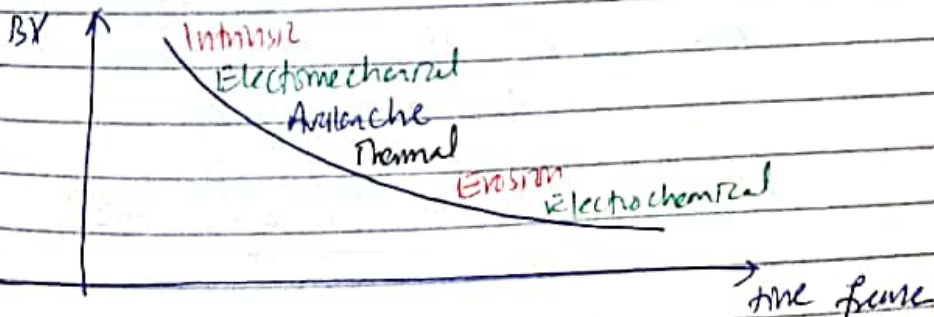 BV
Intrinsic
Electomechanical
Avalanche
Thermal
Erosion
Electrochemical
time frame